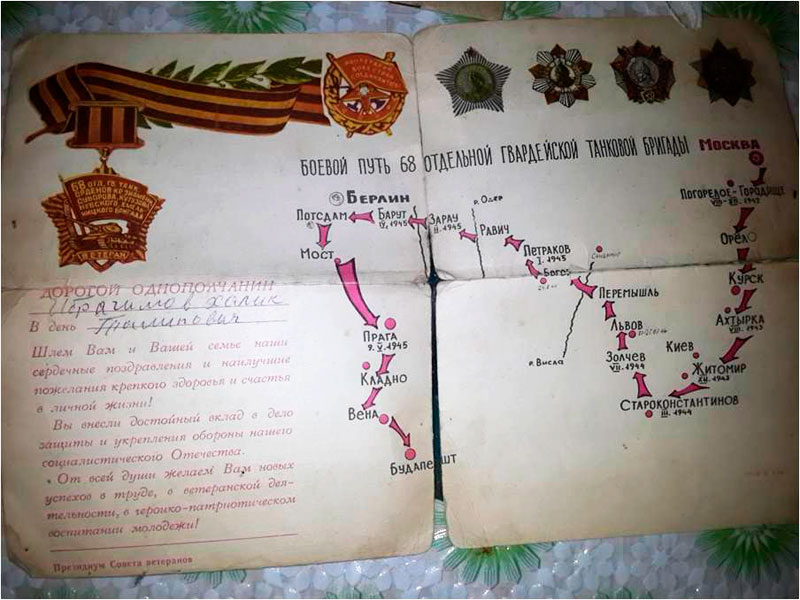 68 ОТД. ГВ. ТАНК.
ОРДЕНОВ КР.
СУВОРОВА, КУТУЗОВА
НЕВСКОГО, ХМЕЛЬ
НИЦКОГО БРИГАДА
ВЕТЕРАН
БОЕВОЙ ПУТЬ 68 ОТДЕЛЬНОЙ ГВАРДЕЙСКОЙ ТАНКОВОЙ БРИГАДЫ
МОСКВА
ПОГОРЕЛОЕ-ГОРОДИЩЕ
ОРЕЛ
КУРСК
АХТЫРКА
VIII. 1943
КИЕВ
ЖИТОМИР
XII. 1943
СТАРОКОНСТАНТИНОВ
III. 1944
ЗОЛЧЕВ
VII. 1944
ЛЬВОВ
ПЕРЕМЫШЛЬ
р. ВИСЛА
ПЕТРАКОВ
I. 1945
РАВИЧ
р. ОДЕР
ЗАРАУ
II. 1945
БАРУТ
IV. 1945
БЕРЛИН
ПОТСДАМ
МОСТ
ПРАГА
9. V. 1945
КЛАДНО
ВЕНА
БУДАПЕШТ
ДОРОГОЙ ОДНОПОЛЧАНИН
Ибрагимов Халик
В день Талипович
Шлем Вам и Вашей семье наши
сердечные поздравления и наилучшие
пожелания крепкого здоровья и счастья
в личной жизни!
Вы внесли достойный вклад в дело
защиты и укрепления обороны нашего
социалистического Отечества.
От всей души желаем Вам новых
успехов в труде, в ветеранской дея-
тельности, в героико-патриотическом
воспитании молодежи!
Президиум Совета ветеранов